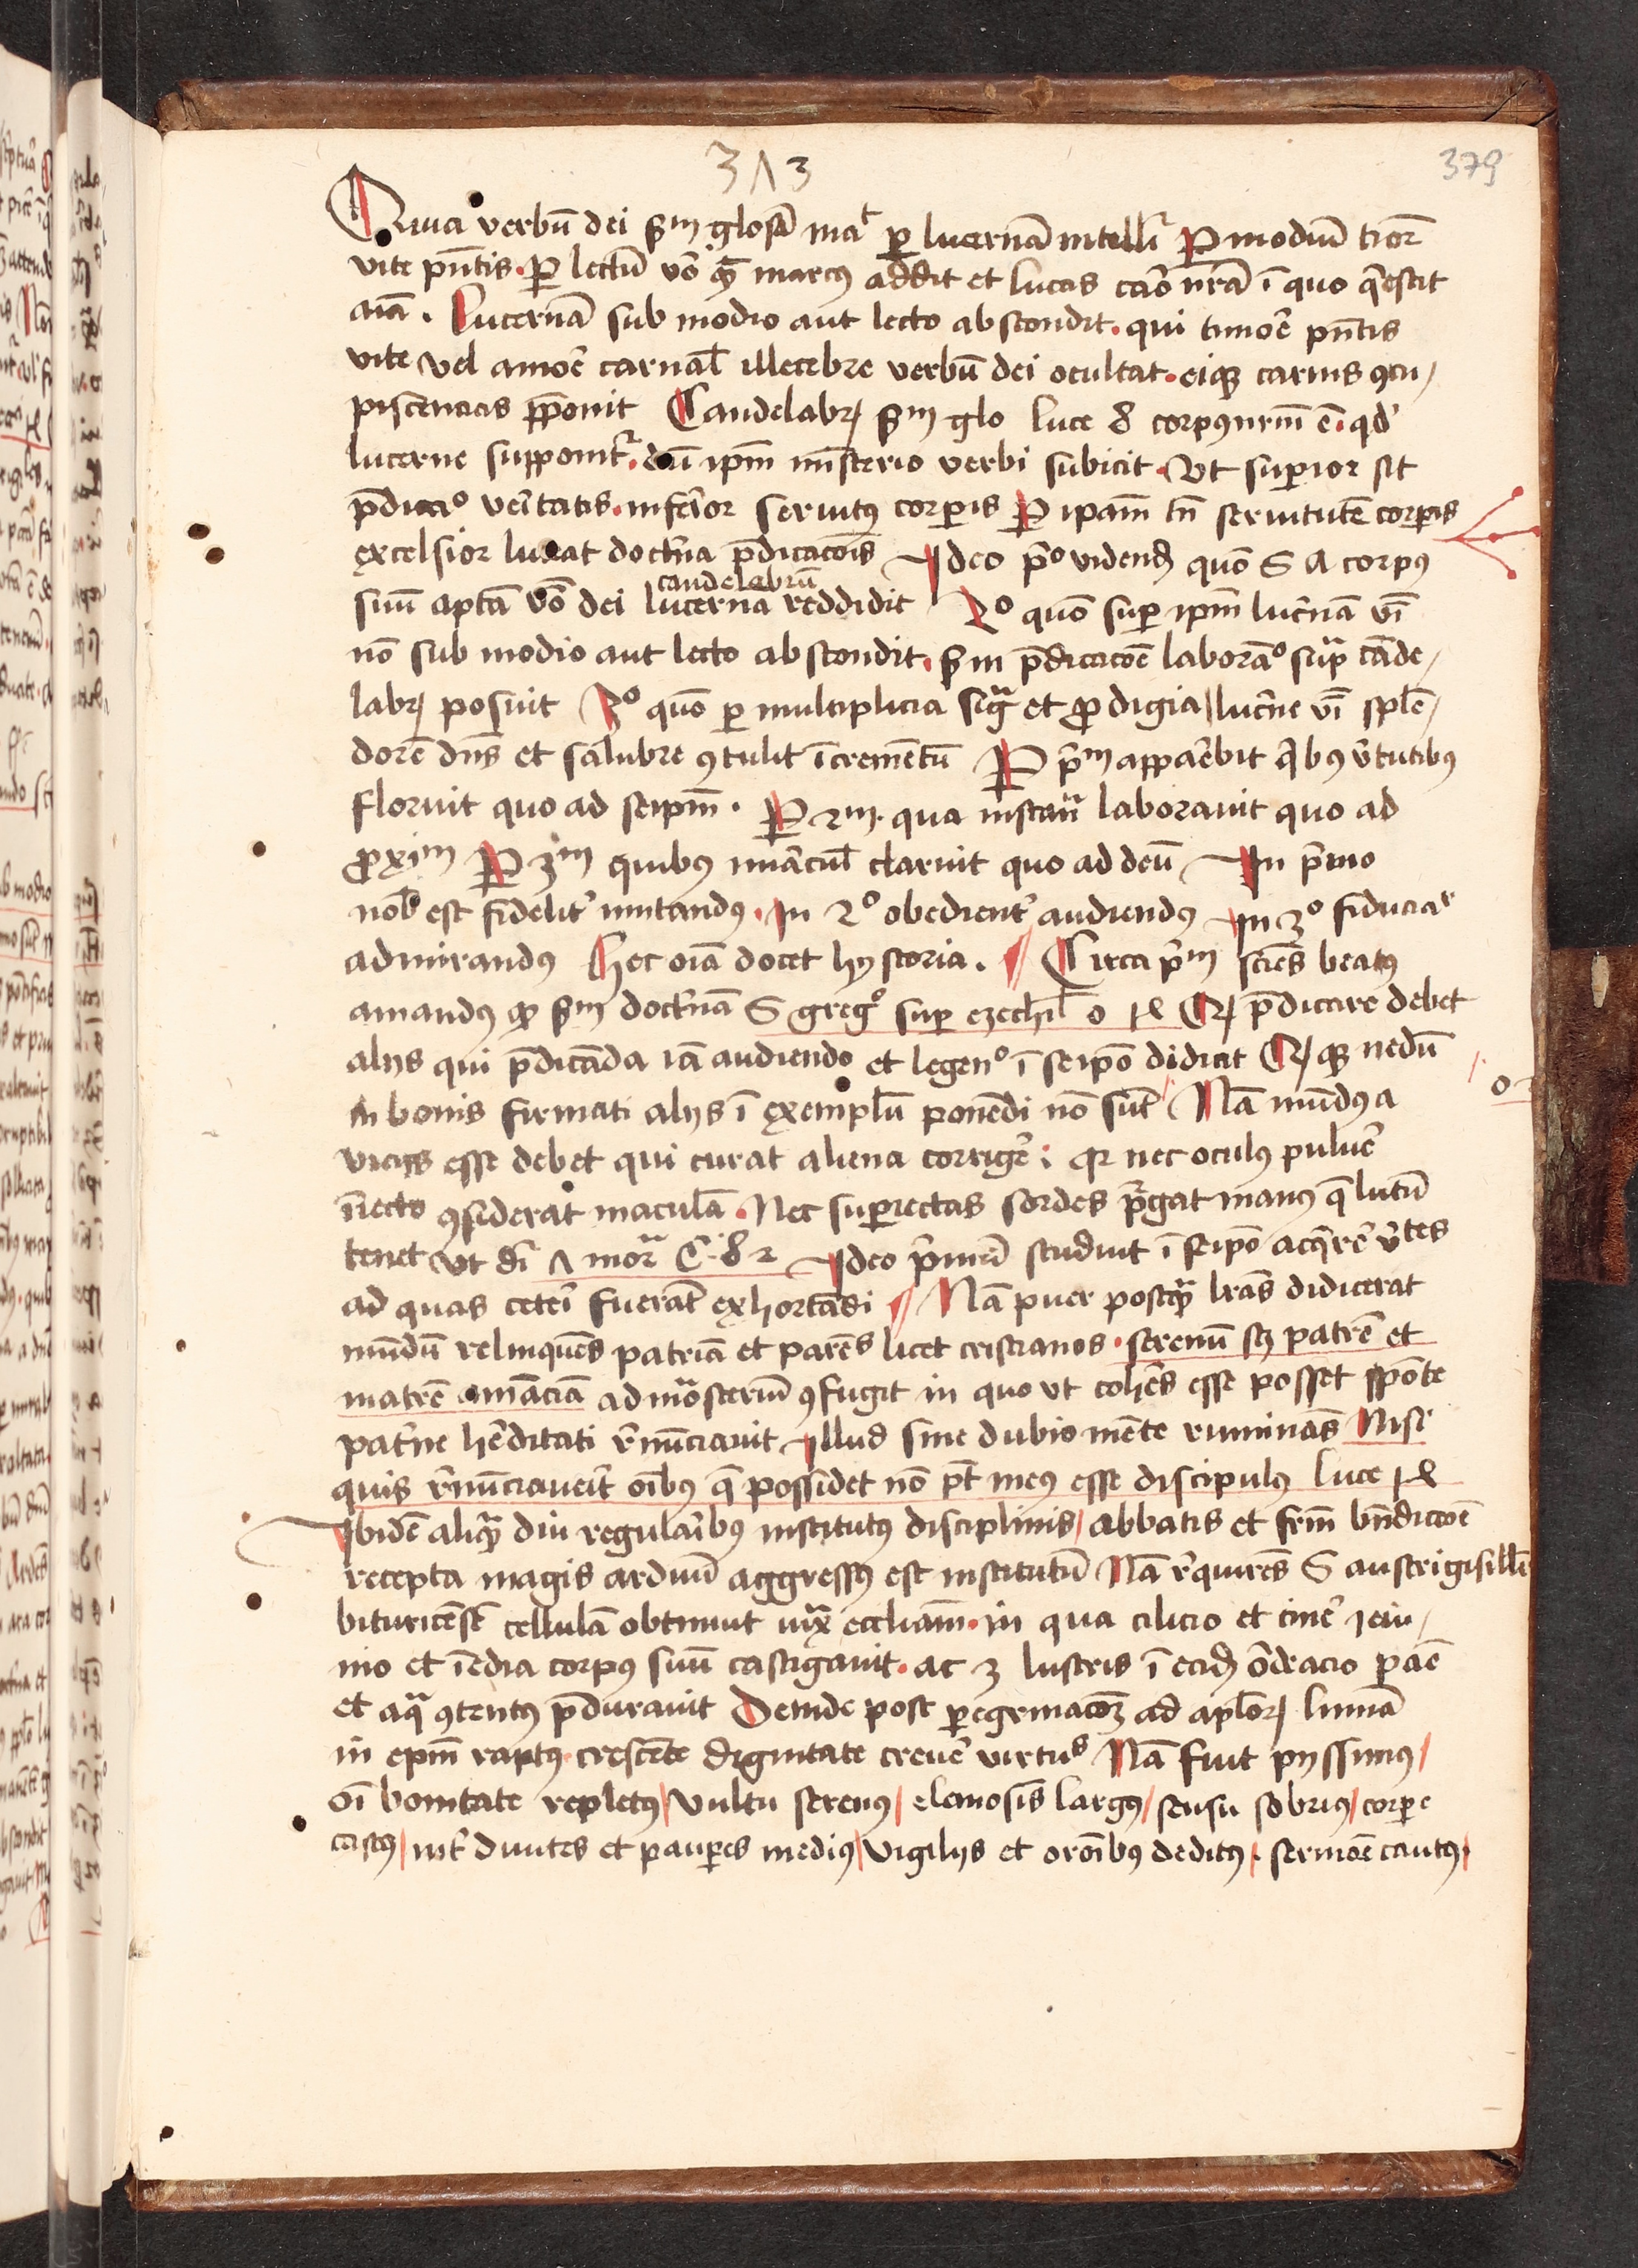 3Λ3
379
Quia verbū dei sm glosā mat per lucernā intelligr Per modiū timor
vite pntis. Per lectū vo quē marcus addit et lucas caro nrā ī quo quiescit
aīa. Lucernā sub modio aut lecto abscondit. qui timore pntis
vite vel amore carnal illecebre verbū dei ocultat. eique carnis ꝯcu/
piscencias pponit Candelabrꝝ sm glo luce 8 corpus nrm ē. qd
lucerne supponitr. dū ipm misterio verbi subicit. Vt superior sit
pdicacio veritatis. inferior seruitus corporis Per ipam tn seruitutē corporis
excelsior luceat doctrina pdicacois Ideo po vidend quo S A corpus
suū aptā vo dei lucerna reddidit 2o quo super ipm lucernā vī
candelabrū
no sub modio aut lecto abscondit. sm pdicacoe laborāo supra cāde/
labrꝝ posuit 3o quo per multiplicia signa et prodigia / lucerne vī sple/
dore dns et salubre ꝯtulit īcrementū Per pm apparebit quibus vtutibus
floruit quo ad seipm. Per 2m. qua instantia laborauit quo ad
proxim Per 3m quibus miracul claruit quo ad deū In primo
nob est fidelitr imitandus. In 2o obedientr audiendus In 3o fiduciar
admirandus Hec oīa docet hystoria. Circa pm sciens beatus
amandus quod sm doctrinā S grego super ezechil o Ꝝ pdicare debet
alijs qui pdicāda iā audiendo et legendo ī seipso didicit Ꝝ quia nedū
in bonis firmati alijs ī exemplū ponēdi no sūt Nā mūdus a
vicijs esse debet qui curat aliena corrigere: quia nec oculus puluere
īnecto ꝯsiderat maculā. Nec superiectas sordes purgat manus que lutū
tenet vt dī Λ mor C. 82 Ideo primū studuit ī seipso acquirere vtes
ad quas ceteri fuerāt exhortādi Nā puer postquā lras didicerat
mūdū relinquens patriā et parens licet cristianos. serenū scz patrē et
matrē amāciā ad monasteriū ꝯfugit in quo vt coheres esse posset sponte
paterne hereditati renūciauit Illud sine dubio mente ruminās Nisi
quis renūciauerit oībus que possidet no pt meus esse discipulus luce
Ibidē aliquādiu regularibus institutus disciplinis / abbatis et frm bndiccoe
recepta magis arduū aggressus est institutū Nā requirens S austrigisillū
bituricensē cellulā obtinuit iuxta eccliam. in qua cilicio et cinere ieiu/
nio et īedia corpus suū castigauit. ac 3 lustris ī eadē ordeacio pane
et aqua ꝯtentus pdurauit Deinde post peregrinacoz ad aplorꝝ liminā
in epm raptus crescente dignitate creuit virtus Nā fuit pijssimus /
oī bonitate repletus / vultu serenus / elemosīs largus / sensu sobrius / corpore
castus / inter diuites et pauperes medius / vigilijs et oroībus deditus. sermone cautus /